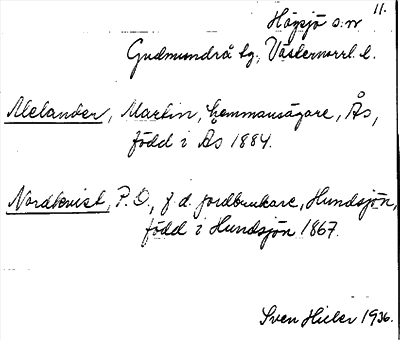 11.
Högsjö s:n
Gudmundrå tg, Västernorrl. l.
Melander, Martin, hemmansägare, Ås,
född i Ås 1884.
Nordkvist, P. O., f. d. jordbrukare, Hundsjön,
född i Hundsjön 1867.
Sven Hieler 1936.